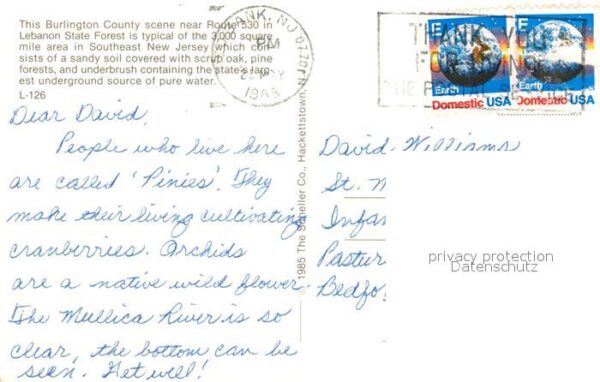 This Burlington County scene near Route 530 in
Lebanon State Forest is typical of the 3,000 square
mile area in Southeast New Jersey which con-
sists of a sandy soil covered with scrub oak, pine
forests, and underbrush containing the state's larg-
est underground source of pure water.
L-126
Dear David,
People who live here
are called 'Pinies'. They
make their living cultivating
cranberries. Orchids
are a native wild flower.
The Mullica River is so
clear, the bottom can be
seen. Get well!
© 1985 The Scheller Co., Hackettstown, NJ
BANK, NJ 07701
PM
1988
THANK YOU
FOR USING
THE POSTAL SERVICE
E
Earth
Domestic USA
E
Earth
Domestic USA
David Williams
St. M
Infan
Pastur
Bedfo
privacy protection
Datenschutz